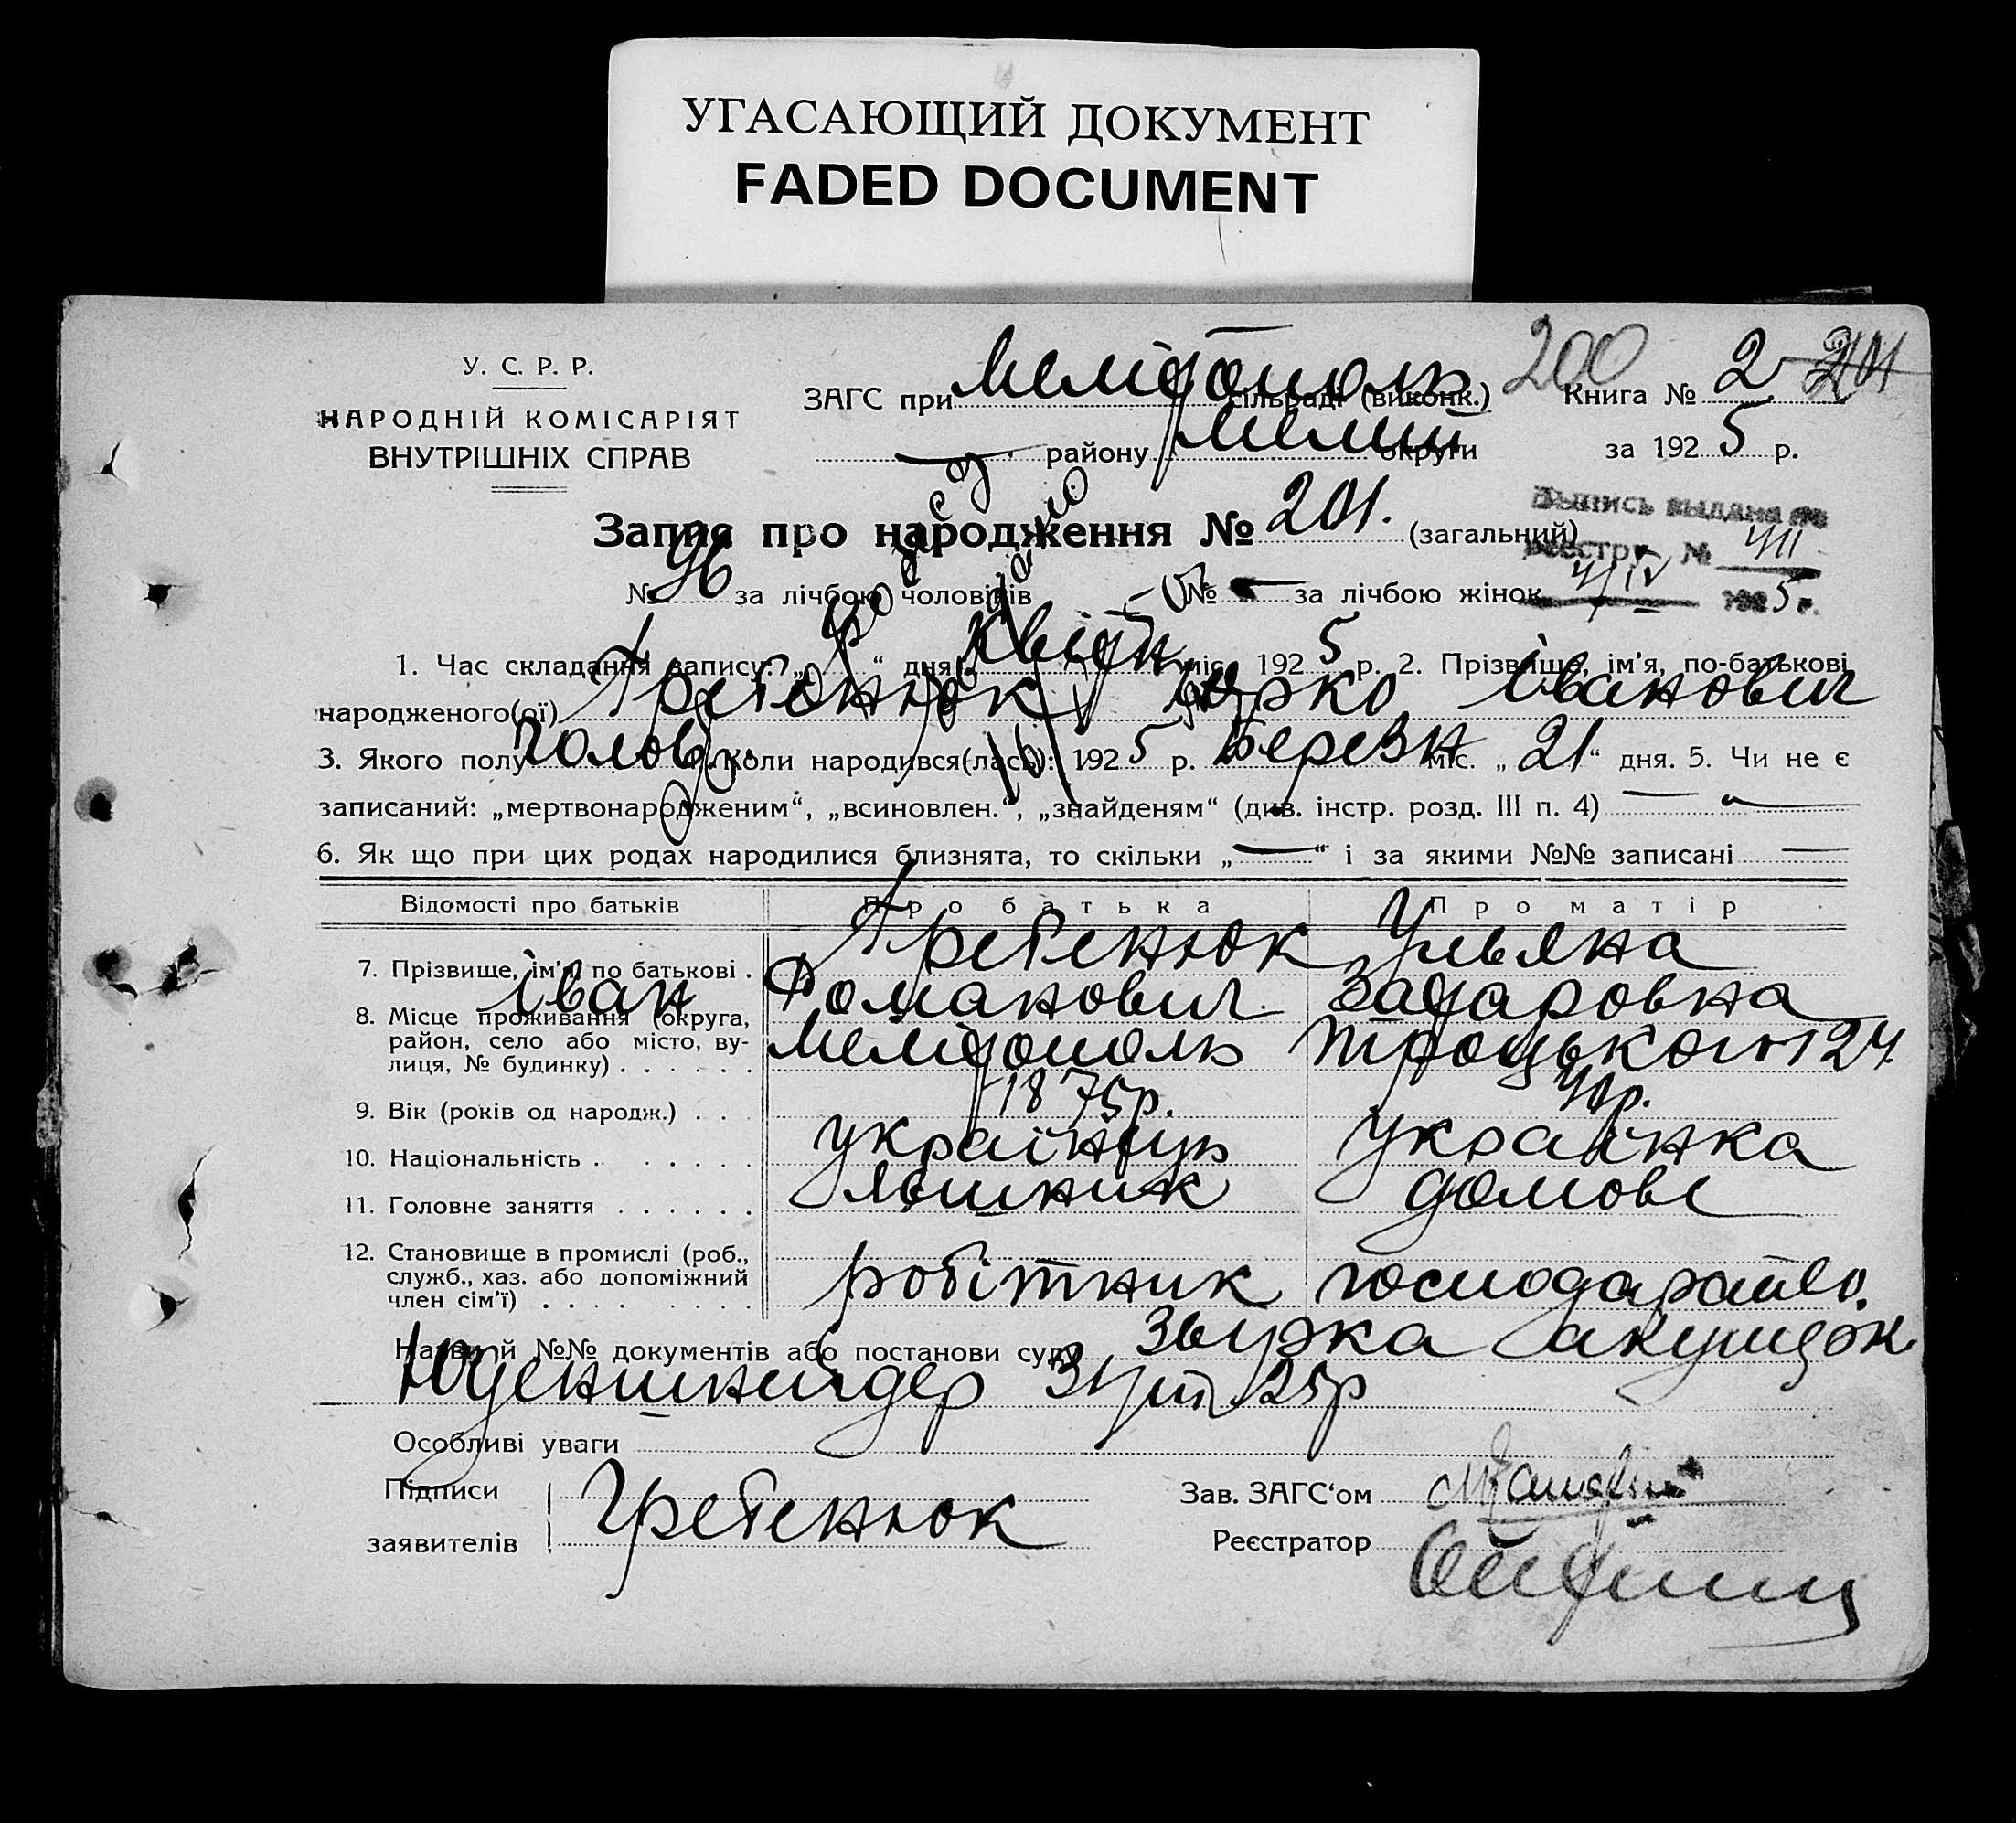 УГАСАЮЩИЙ ДОКУМЕНТ
FADED DOCUMENT
У. С. Р. Р.
НАРОДНІЙ КОМІСАРІЯТ
ВНУТРІШНІХ СПРАВ
ЗАГС при Мелітополь сільраді (виконк.) 200 Книга № 2 201
— району Меліт округи за 1925 р.
Запис про народження № 201. (загальний)
Выпись выдана по
реестру №
1925 г.
№ 96 за лічбою чоловіків — № — за лічбою жінок
1. Час складання запису: „ “ дня Квітн міс. 1925 р. 2. Прізвище, ім'я, по-батькові
народженого(ої) Гребенюк Юрко Іванович
3. Якого полу чолов. 4. Коли народився(лась): 1925 р. Березн міс. „21“ дня. 5. Чи не є
записаний: „мертвонародженим“, „всиновлен.“, „знайденям“ (див. інстр. розд. III п. 4) —
6. Як що при цих родах народилися близнята, то скільки „—“ і за якими №№ записані —
Відомості про батьків Про батька Про матір
7. Прізвище, ім'я, по батькові . Гребенюк Ульяна
Іван Романович Захаровна
8. Місце проживання (округа,
район, село або місто, ву-
лиця, № будинку) . . . . . . Мелітополь Троцького 124
9. Вік (років од народж.) . . . 1875р.
10. Національність . . . . . . українець українка
11. Головне заняття . . . . . . домове
12. Становище в промислі (роб.,
служб., хаз. або допоміжний
член сім'ї) . . . . . . . робітник господарство.
Назви й №№ документів або постанови суду акушерк
25р
Особливі уваги
Підписи
заявителів Гребенюк
Зав. ЗАГС‘ом
Реєстратор